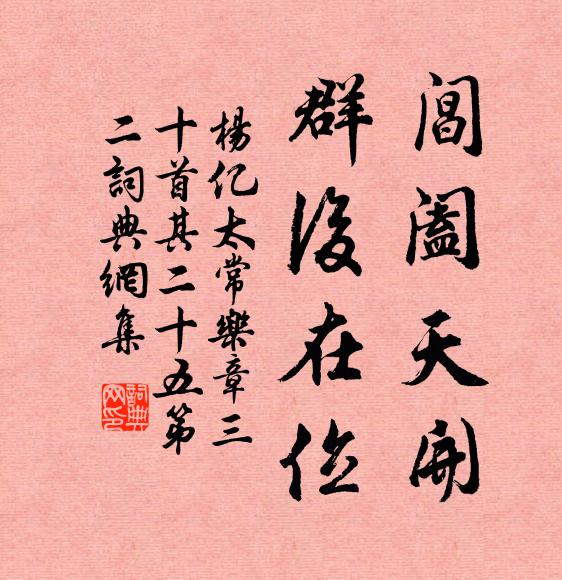 閶闔天開
群後在位
楊億太常樂章三
十首其二十五第
二詞典網集
詞典
网印